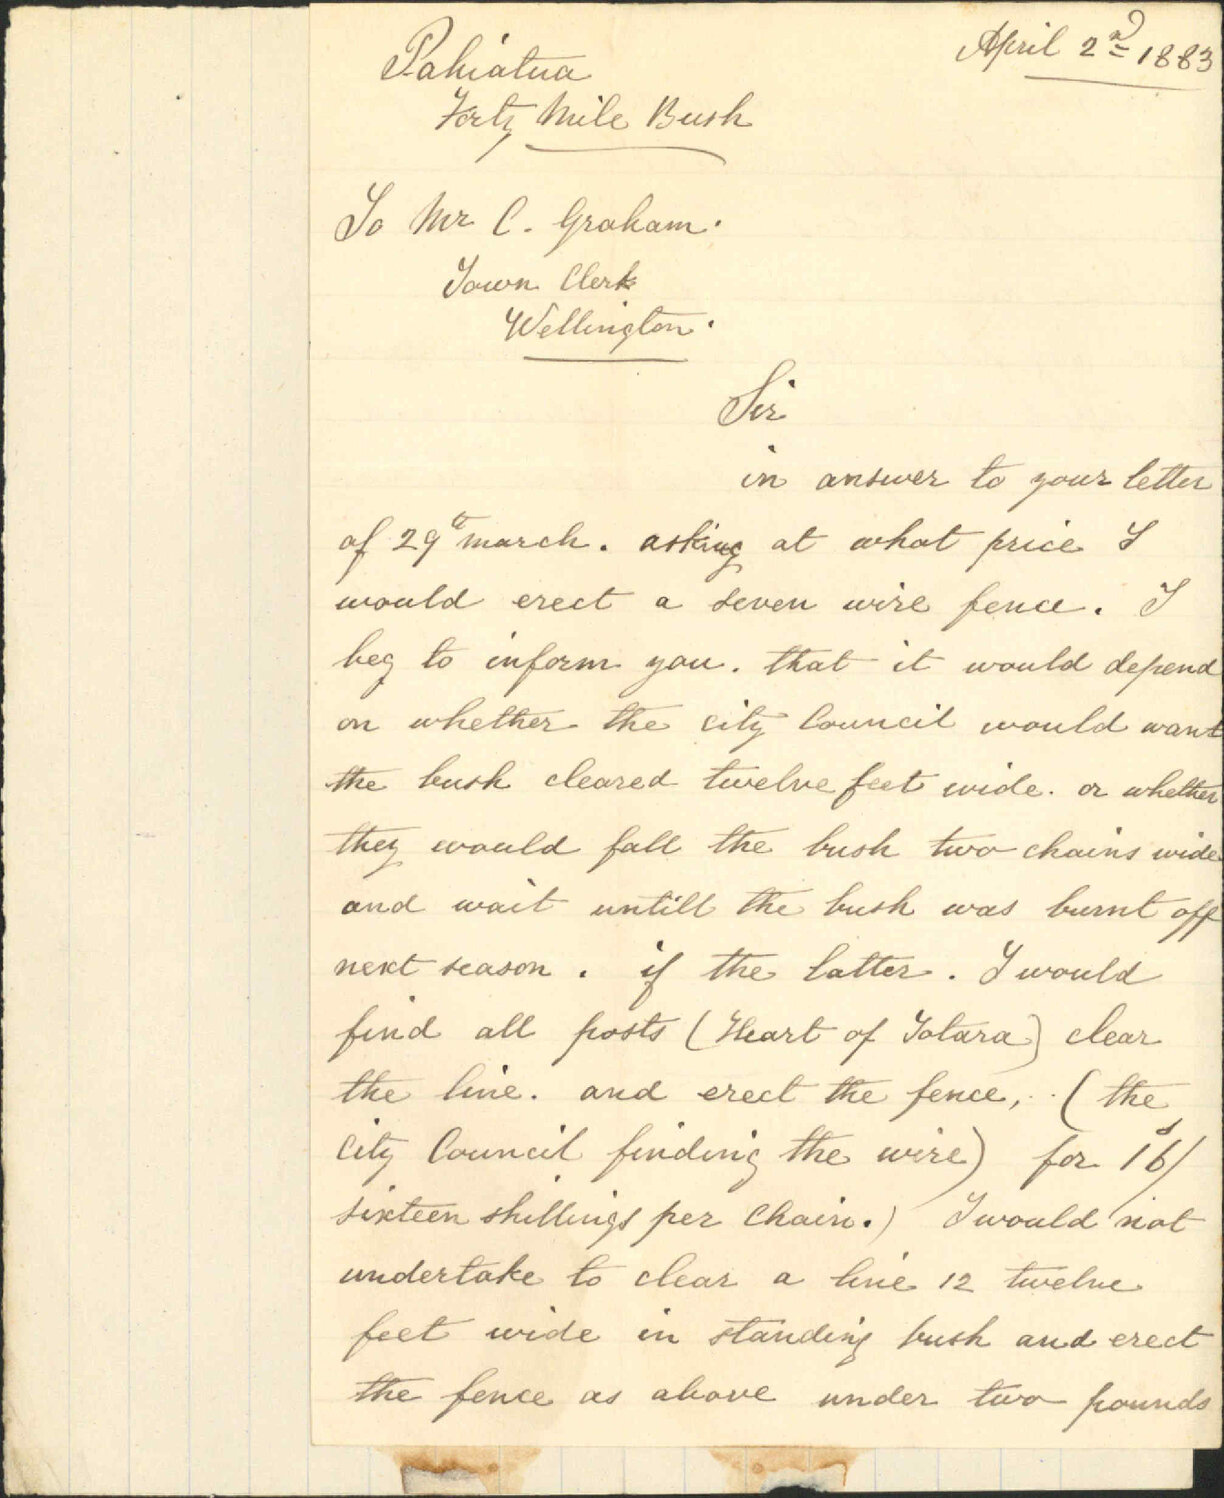 April 2nd 1883
Pahiatua
Forty Mile Bush
To Mr C. Graham.
Town Clerk
Wellington.
Sir
in answer to your letter
of 29th march. asking at what price I
would erect a seven wire fence. I
beg to inform you. that it would depend
on whether the City Council would want
the bush cleared twelve feet wide. or whether
they would fall the bush two chains wide
and wait untill the bush was burnt off
next season. if the latter. I would
find all posts (Heart of Totara) clear
the line. and erect the fence, (the
City Council finding the wire) for 16s/
sixteen shillings per Chain.) I would not
undertake to clear a line 12 twelve
feet wide in standing bush and erect
the fence as above under two pounds